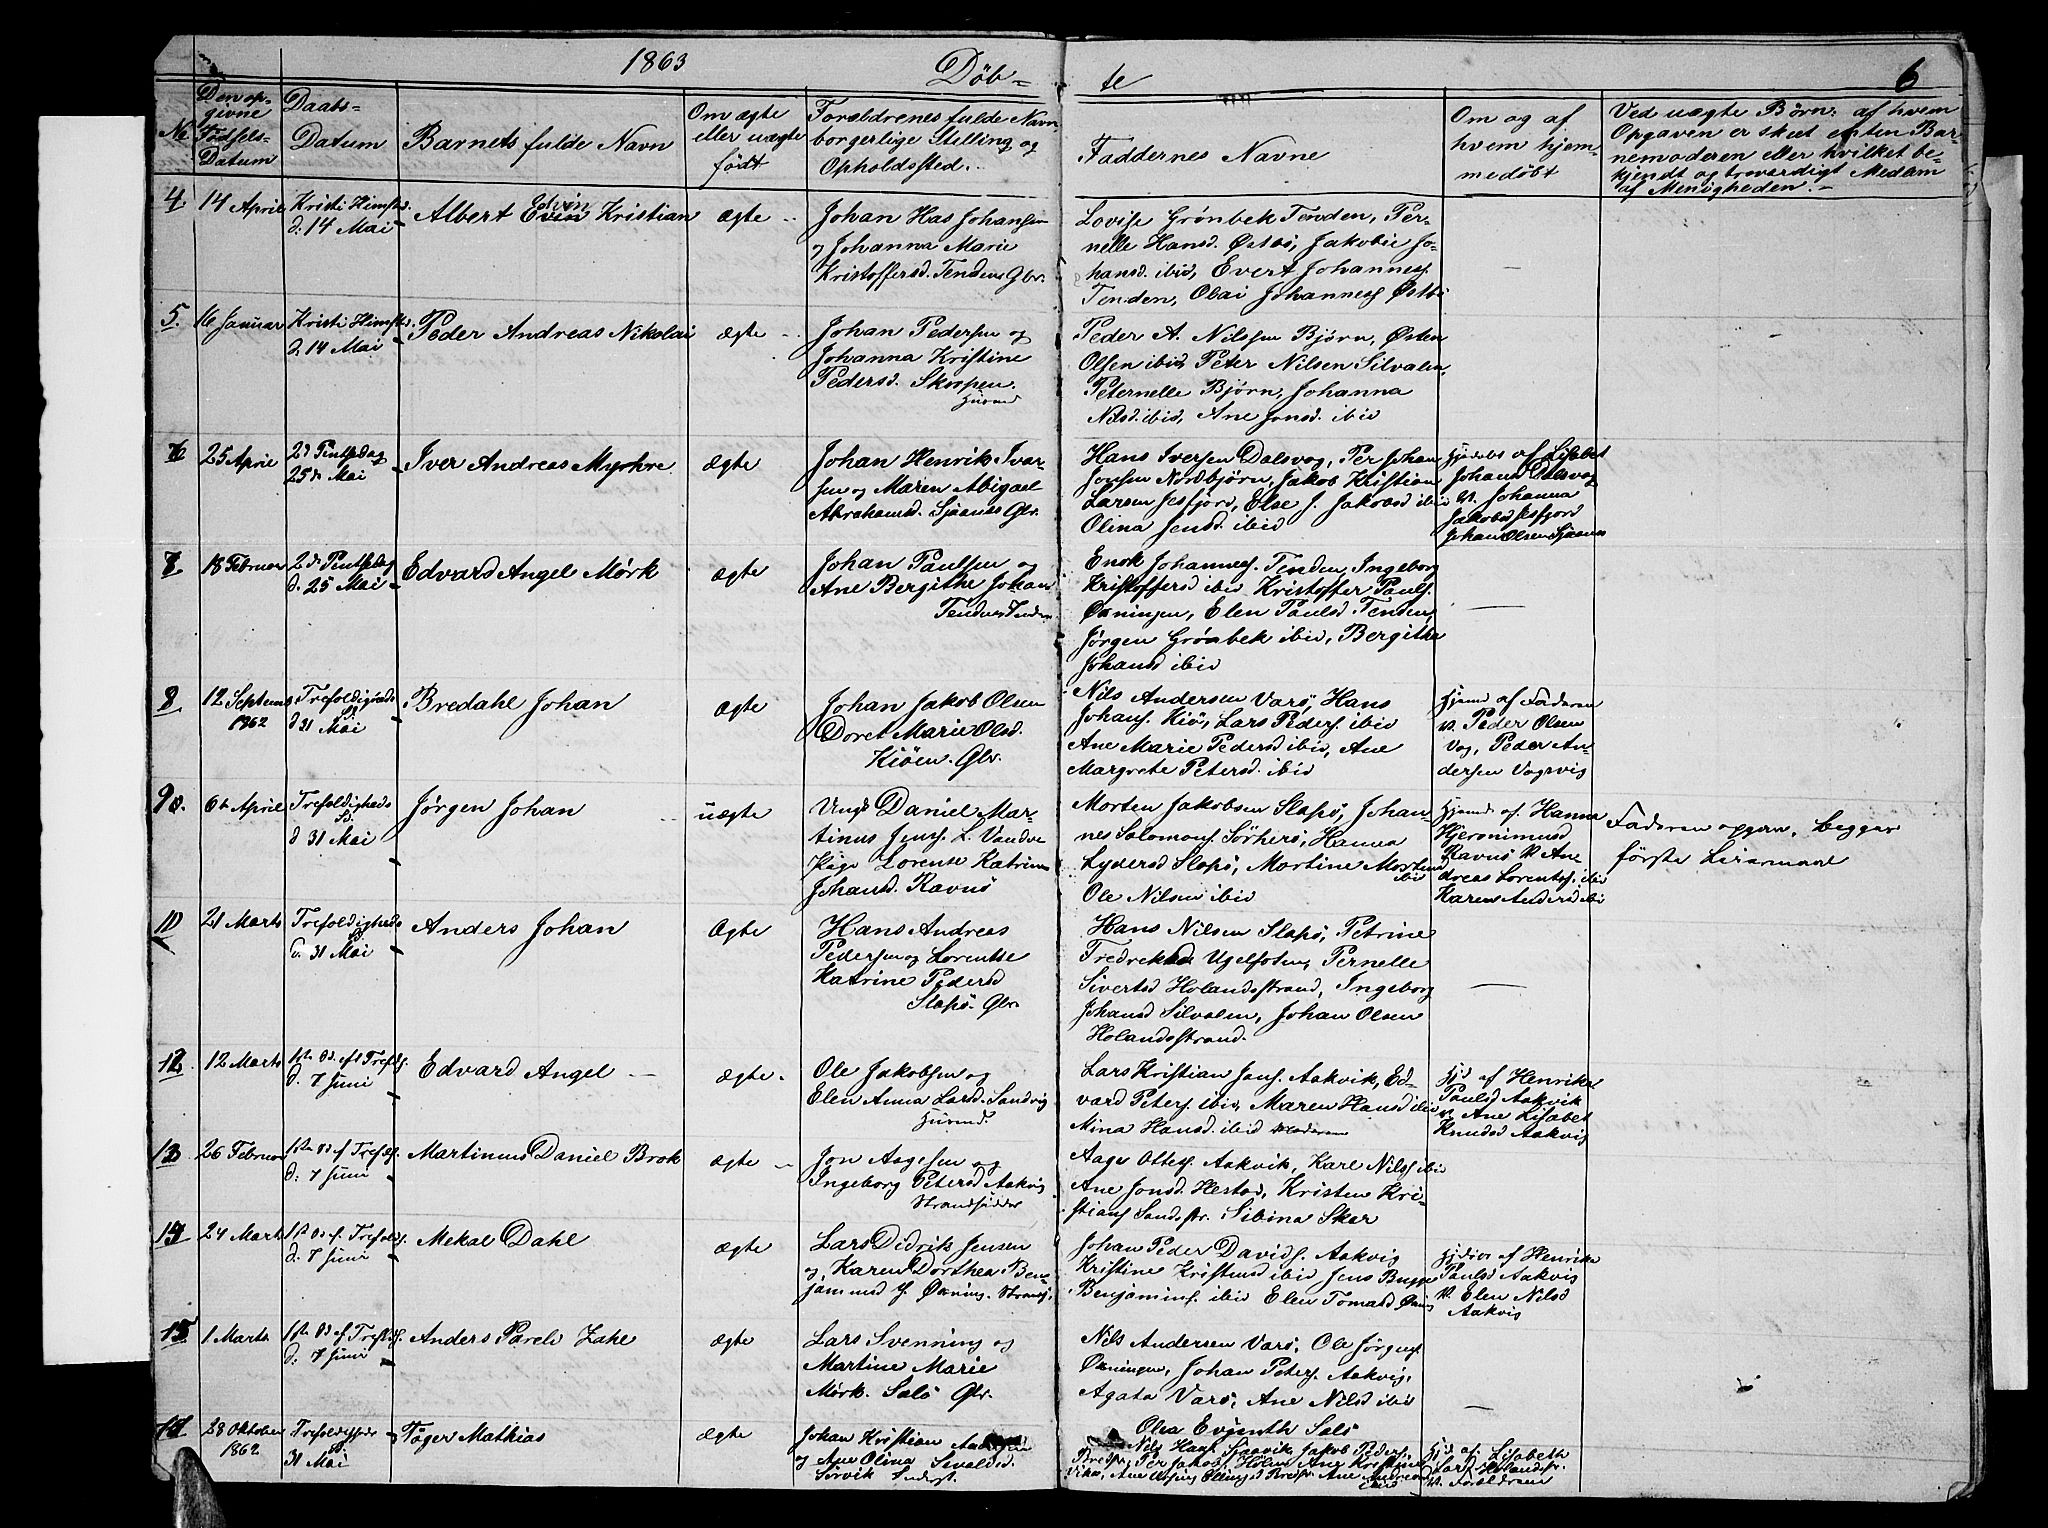 1863 Döb- te 6
No
Den op-
givne
Födsels-
Datum
Daabs-
Datum
Barnets fulde Navn
Om ægte
eller uægte
födt
Forældrenes fulde Navn
borgerlige Stilling og
Opholdssted.
Faddernes Navne
Om og af
hvem hjem-
medöbt
Ved uægte Börn: af hvem
Opgaven er skeet enten Bar-
nemoderen eller hvilket be-
kjendt og troværdigt Medlem
af Menigheden.
4 14 April Kristi Himfts
d. 14 Mai
Albert Edvin Kristian
ægte
Johan Has Johansen
og Johanna Marie
Kristoffersd. Tenden Gbr.
Lovise Grönbek Tenden, Per-
nelle Hansd. Östbö, Jakobie Jo-
hansd. ibid, Evert Johannesf.
Tenden, Olai Johannesf Östbö
—
5. 16 Januar Kristi Himfts.
d 14 Mai
Peder Andreas Nikolai
ægte
Johan Pedersen og
Johanna Kristine
Pedersd. Skorpen.
Husmd
Peder A. Nilssen Bjørn, Østen
Olsen ibid, Peter Nilsen Silvalen,
Peternelle Bjørn, Johanna
Nilsd. ibid, Ane Jonsd. ibid
6 25 April 2d Pintsedag
25de Mai
Iver Andreas Myrhre
Ægte
Johan Henrik Ivar-
sen og Maren Abigael
Abrahamsd. Sjaanes Gbr.
Hans Iversen Dalsvog, Per Johan
Jonsen Nordbjørn, Jakob Kristian
Larsen Sesfjord, Else J. Jakobsd ibid
Olina Jensd. ibid
Hjdöbt af Lisabet
Johansd Dalsvog
V. Johanna
Jakobsd Sesfjord
Johan Olsen Sjaanes
7 18 Februar 2d Pintsedag
d. 25 Mai
Edvard Angel Mörk
ægte
Johan Paulsen og
Ane Bergithe Johan
Enok Johannesf. Tenden, Ingeborg
Kristoffersd ibid, Kristoffer Paulsf.
Øxningen, Elen Paulsd Tenden,
Jørgen Grönbek ibid, Bergitha
Johansd ibid
—
8 12 Septemb
1862
Trefoldigheds
S.
d 31 Mai
Bredahl Johan
ægte
Johan Jakob Olsen
Doret Marie Olsd.
Kiöen. Gbr.
Nils Andersen Varö, Hans
Johansf. Kiö, Lars Pedersf. ibid
Ane Marie Pedersd ibid, Ane
Margrete Petersd. ibid
Hjemd af Faderen
V. Peder Olsen
Vog, Peder An-
dersen Vogsvig
9. 6te April Trefoldigheds
S.
d 31 Mai
Jørgen Johan
uægte
Ungk Daniel Mar-
tinus Jensf. L. Vandve
Pige Lorense Katrine
Johansd. Ravnö
Morten Jakobsen Slapö, Johan-
nes Salomonsf. Sörherö, Hanna
Lydersd Slapö, Martine Mortensd
ibid
Ole Nilsen ibid
Hjemd af. Hanna
Hjeronimusd
Ravnö V. Ane
dreas Lorentsf. ibid
Karen Andersd ibid
Faderen opgivn, begges
förste Leiermaal
10 21 Marts Trefoldigheds
S.
d. 31 Mai
Anders Johan
Ægte
Hans Andreas
Pedersen og Lorentse
Katrine Pedersd
Slapö. Gbr.
Hans Nilsen Slapö, Petrine
Fredriksd Ugelfoten, Pernelle
Sivertsd Holandsstrand, Ingeborg
Johansd Silvalen, Johan Olsen
Holandsstrand.
—
12 12 Marts 1ste Sd. eft Trefoldf.
d. 7 Juni
Edvard Angel
ægte
Ole Jakobsen og
Elen Anna Larsd. Sandvig
Husmd.
Lars Kristian Jansf. Aakvik, Ed-
vard Petersf. ibid, Maren Hansd ibid
Nina Hansd. ibid Moderen
Hjd af Henrika
Paulsd Aakvik
V. Ane Lisabet
Knudsd Aakvig
13 26 Februar 1ste Sd ef. Trefoldf.
d: 7 Juni
Martinus Daniel Brok
ægte
Jon Aagesen og
Ingeborg Petersd Aakvig
Strandsidder
Aage Ottesf. Aakvik, Karl Nilsf ibid
Ane Jonsd. Hestad, Kristen Kri-
stiansf Sandstr. Sibina Skar
14 24 Marts 1ste Sd ef. Trefoldf.
d: 7 Juni
Mekal Dahl
ægte
Lars Didrik Jensen
og Karen Dorthea Ben-
jaminsd Y. Øxning. Strandf.
Johan Peder Davidsf. Aakvig
Kristine Kristensd ibid Jens Bugge
Benjaminsf. ibid Elen Tomasd Øxnig
Hjdöbt af Henrika
Paulsd Aakvig
V. Elen Nilsd
Aakvig
15 1 Marts 1ste Sd ef Trefoldf.
d. 7 Juni
Anders Pareli Zahl
ægte
Lars Svenning og
Martine Marie
Mörk. Salö Gbr.
Nils Andersen Varö, Ole Jørgensf
Øxningen, Johan Petersf. Aakvig,
Agata Varö, Ane Nilsd ibid
Olea Evjenth Salö
—
11 28 Oktober
1862
Trefoldigheds
S.
31 Mai
Töger Mathias
ægte
Johan Kristian
og Ane Olina Sivaldsd.
Sörvik Inderst.
Nils Hansf. Sjaavik, Jakob Pedersf.
Bredsp., Per Jakobsf Holm, Ane Kristine
Hjd af. Lisabeth
Larsd Holandsstr.
V. Forældrene